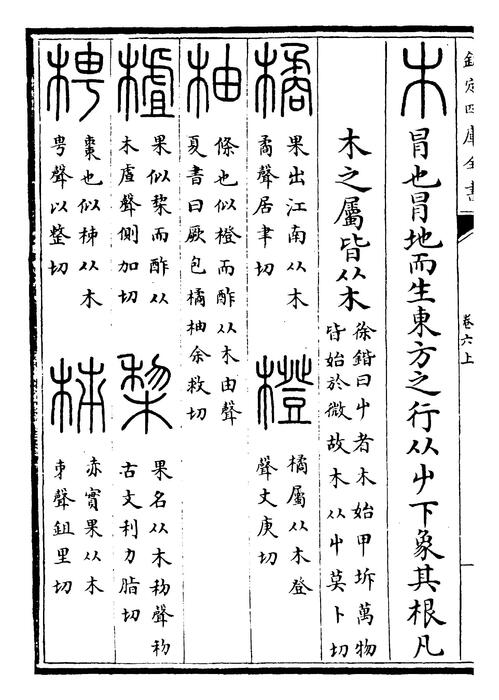 欽定四庫全書
卷六上
木 冒也冒地而生東方之行从屮下象其根凡
木之屬皆从木 徐鍇曰屮者木始甲坼萬物
皆始於微故木从屮莫卜切
橘 果出江南从木
矞聲居聿切
橙 橘屬从木登
聲丈庚切
柚 條也似橙而酢从木由聲
夏書曰厥包橘柚余救切
樝 果似棃而酢从
木虘聲側加切
棃 果名从木𥝢聲𥝢
古文利力脂切
梬 棗也似柹从木
甹聲以整切
柹 赤實果从木
𠂔聲鉏里切